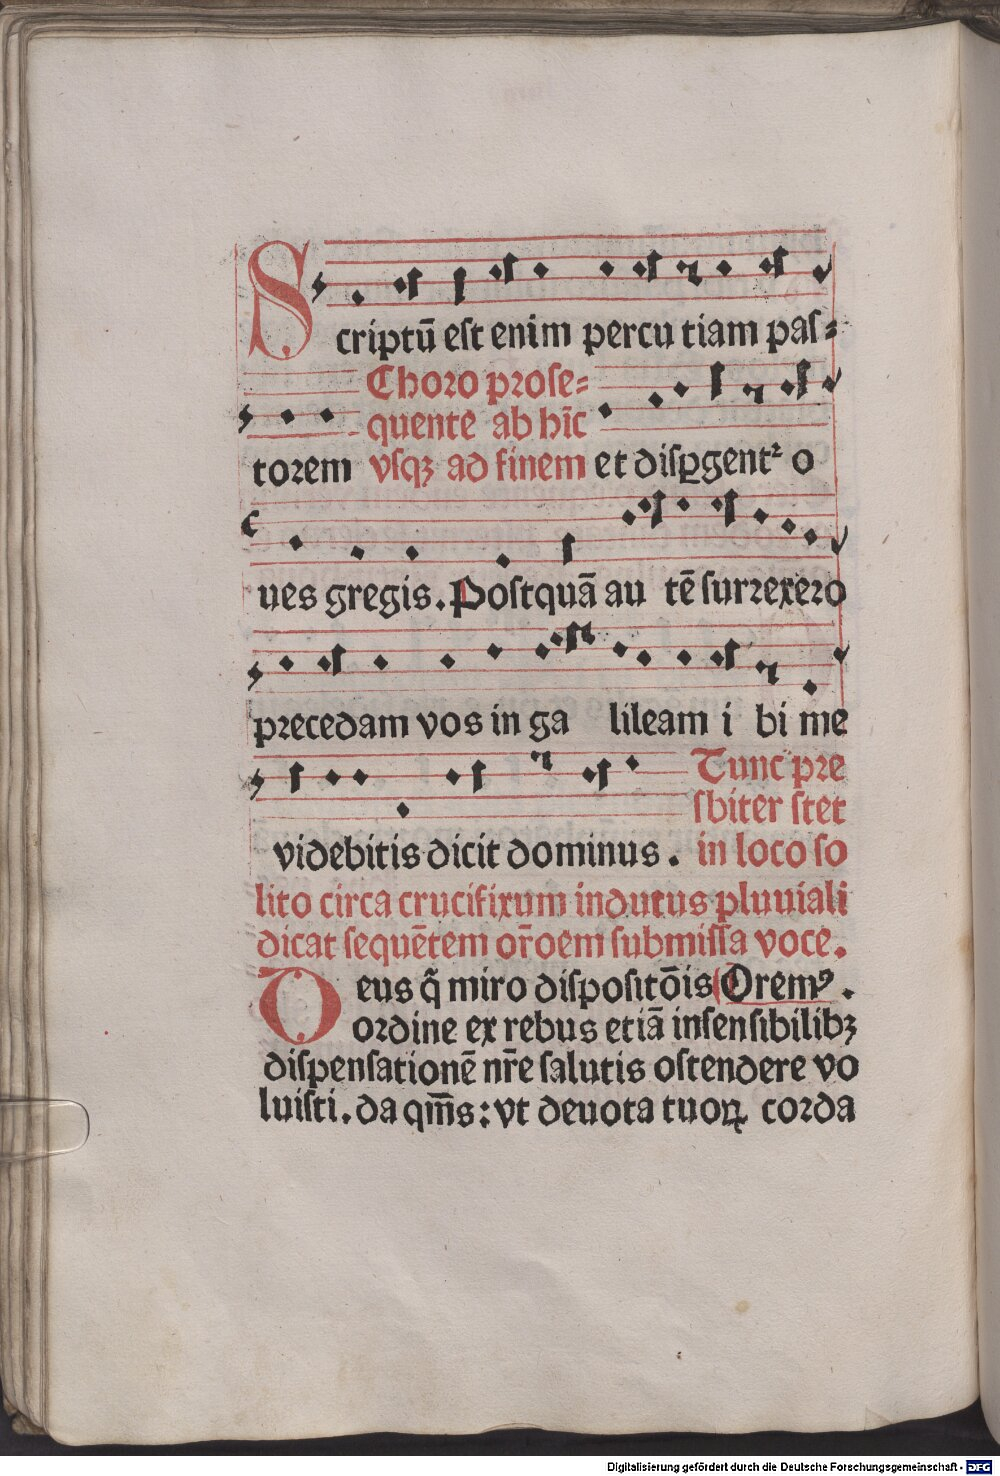 Scriptū est enim percu tiam pas⸗
Choro prose⸗
quente ab hīc
torem vsqꝫ ad finem et disꝑgentᷣ o
ues gregis. Postquā au tē surrexero
precedam vos in ga lileam i bi me
Tunc pre
sbiter stet
videbitis dicit dominus. in loco so
lito circa crucifixum indutus pluuiali
dicat sequētem or̄oem submissa voce.
Deus q̄ miro dispositōis Oremꝰ.
ordine ex rebus etiā insensibilibꝫ
dispensationē nr̄e salutis ostendere vo
luisti. da qm̄s: vt deuota tuoꝝ corda
Digitalisierung gefördert durch die Deutsche Forschungsgemeinschaft - DFG